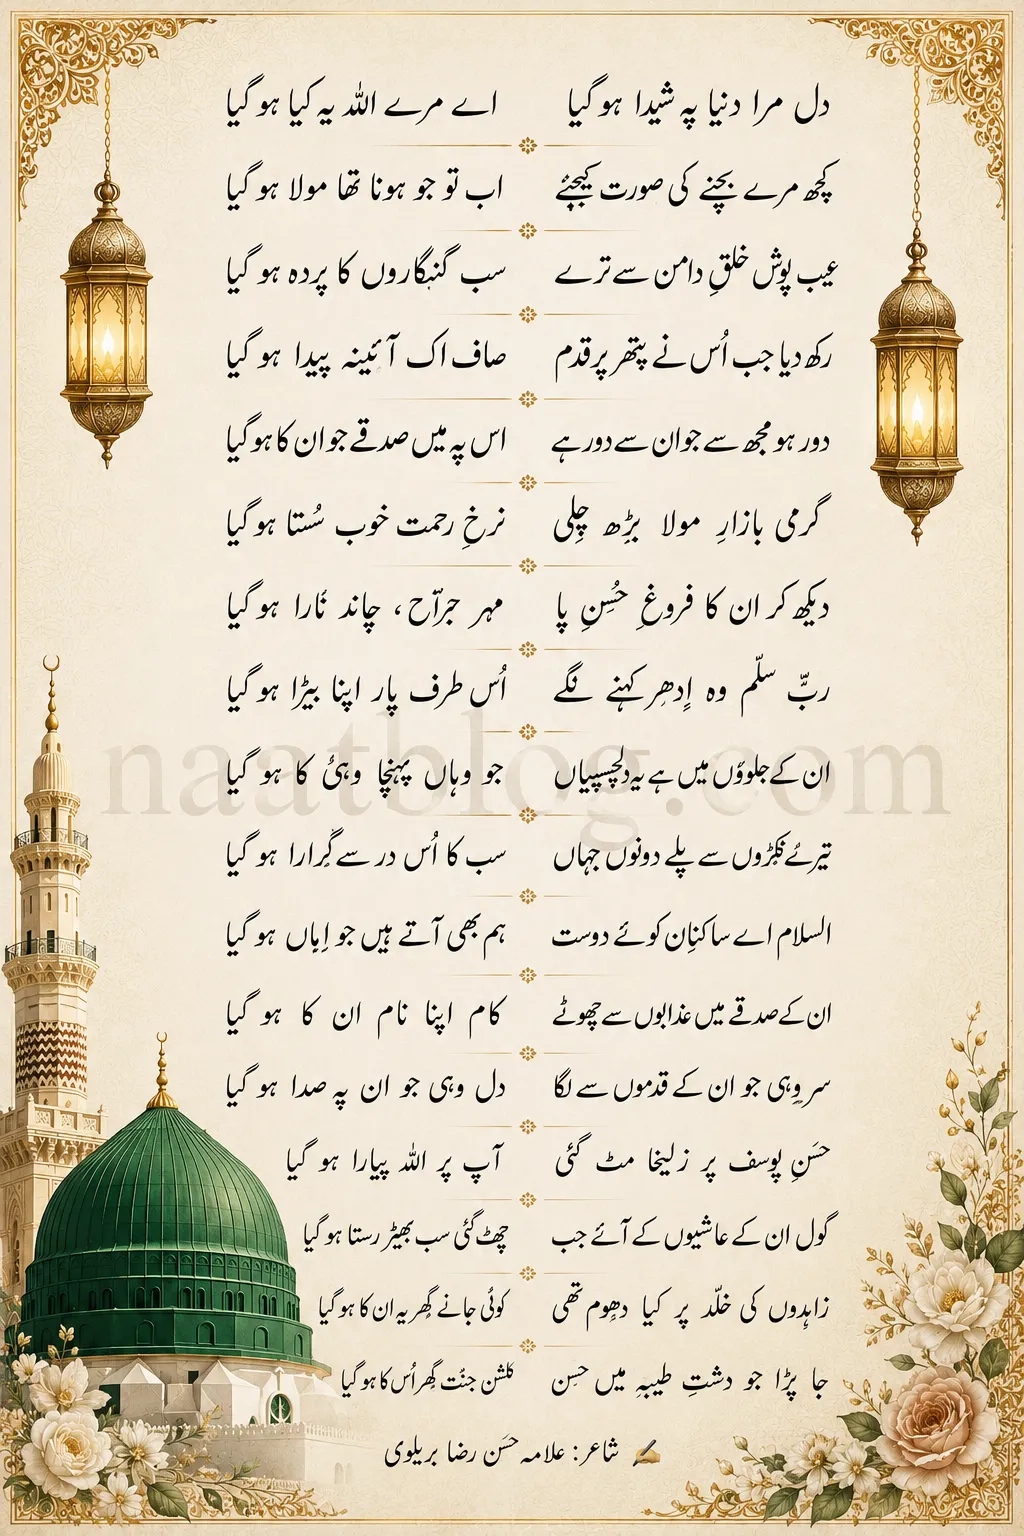 دل مرا دنیا پہ شیدا ہو گیا اے مرے اللہ یہ کیا ہو گیا
کچھ مرے بچنے کی صورت کیجئے اب تو جو ہونا تھا مولا ہو گیا
عیب پوش خلقِ دامن سے ترے سب گنہگاروں کا پردہ ہو گیا
رکھ دیا جب اُس نے پتھر پر قدم صاف اک آئینہ پیدا ہو گیا
دور ہو مجھ سے جو ان سے دور ہے اس پہ میں صدقے جو ان کا ہو گیا
گرمی بازارِ مولا بڑھ چلی نرخِ رحمت خوب سُستا ہو گیا
دیکھ کر ان کا فروغِ حُسنِ پا مہر ، چاند ہو گیا
ربِّ سلّم وہ اِدھر کہنے لگے اُس طرف پار اپنا بیڑا ہو گیا
ان کے جلوؤں میں ہے یہ دلچسپیاں جو وہاں پہنچا وہیُ کا ہو گیا
تیرے ٹکڑوں سے پلے دونوں جہاں سب کا اُس در سے گُزارا ہو گیا
السلام اے ساکنانِ کوئے دوست ہم بھی آتے ہیں جو ہو گیا
ان کے صدقے میں عذابوں سے چھوٹے کام اپنا نام ان کا ہو گیا
سر وہی جو ان کے قدموں سے لگا دل وہی جو ان پہ صدا ہو گیا
حسَنِ یوسف پر زلیخا مٹ گئی آپ پر اللہ پیارا ہو گیا
گول ان کے عاشیوں کے آئے جب چھٹ گئی سب بھیڑ رستا ہو گیا
زاہدوں کی خلّد پر کیا دھوم تھی کوئی جانے گھر یہ ان کا ہو گیا
جا پڑا جو دشتِ طیبہ میں حسن گلشن جنّت گھر اُس کا ہو گیا
✍ شاعر: علامہ حسَن رضا بریلوی
naatblog.com